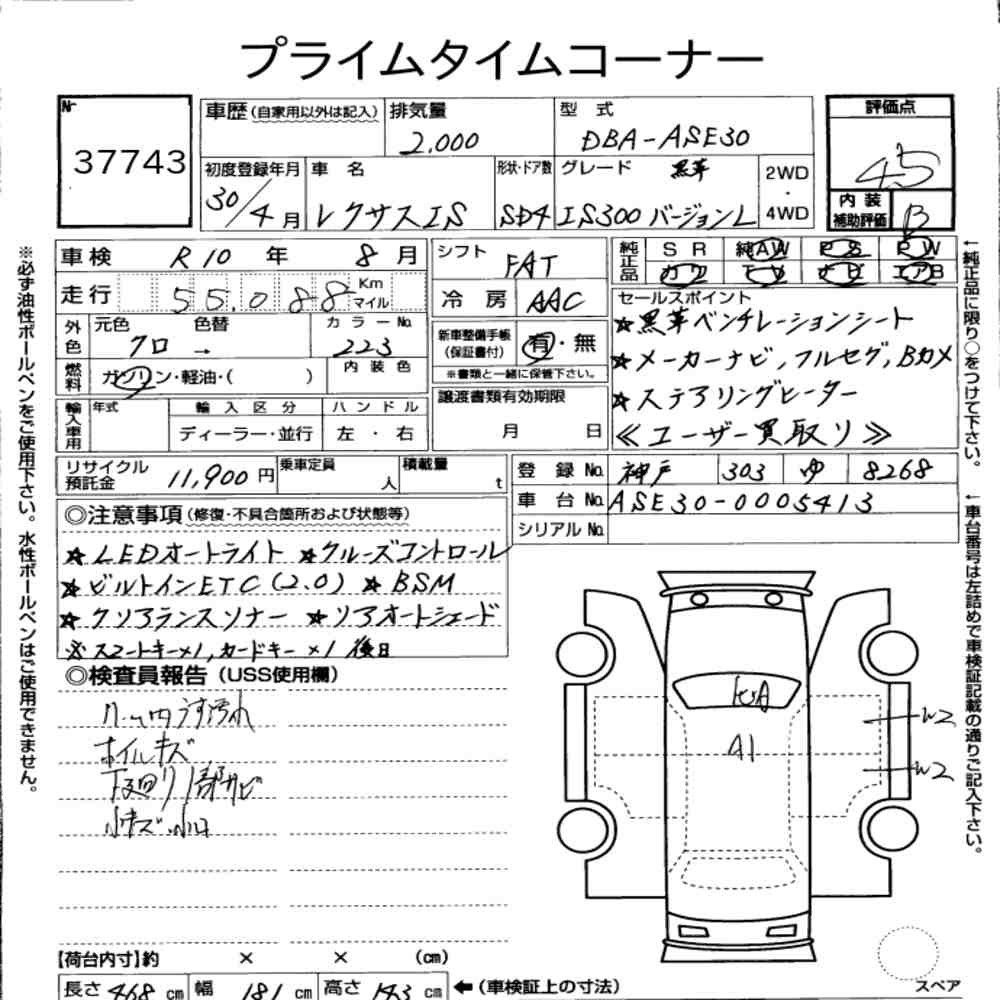 プライムタイムコーナー
Nr 37743
車歴(自家用以外は記入)
排気量 2,000
型式 DBA-ASE30
評価点 4.5
初度登録年月 30/4月
車名 レクサスIS
形状・ドア数 SD4
グレード 黒革 IS300 バージョンL
2WD・4WD
内装補助評価 B
車検 R10年 8月
シフト FAT
純正品 SR 純AW PS PW
カワ TV ナビ エアB
走行 55,088 Km マイル
冷房 AAC
セールスポイント
★黒革ベンチレーションシート
★メーカーナビ,フルセグ,Bカメ
★ステアリングヒーター
≪ユーザー買取り≫
外色 元色 クロ → 色替 カラーNo. 223
新車整備手帳(保証書付) 有・無
※書類と一緒に保管下さい。
燃料 ガソリン・軽油・( ) 内装色
譲渡書類有効期限 月 日
輸入車用 年式 輸入区分 ハンドル
ディーラー・並行 左・右
リサイクル預託金 11,900円
乗車定員 人
積載量 t
登録No. 神戸 303 ゆ 8268
車台No. ASE30-0005413
シリアルNo.
◎注意事項(修復・不具合箇所および状態等)
★LEDオートライト ★クルーズコントロール
★ビルトインETC(2.0) ★BSM
★クリアランスソナー ★リアオートシェード
※スマートキー×1,カードキー×1 後日
◎検査員報告(USS使用欄)
内うす汚れ
ホイルキズ
下回り1部サビ
小キズ 小凹
A1
W2
W2
【荷台内寸】約 × × (cm)
長さ 468 cm 幅 181 cm 高さ 143 cm ←(車検証上の寸法)
スペア
※必ず油性ボールペンをご使用下さい。水性ボールペンはご使用できません。
←純正品に限り○をつけて下さい。
←車台番号は左詰めで車検証記載の通りご記入下さい。